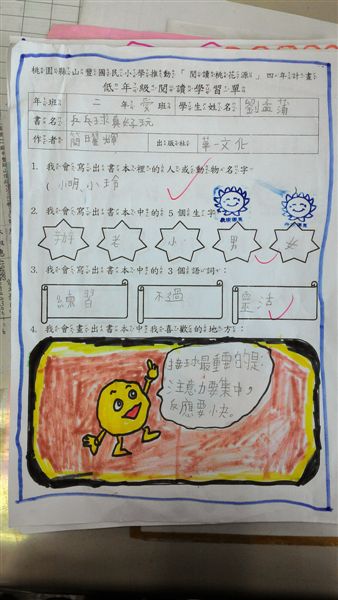 桃園縣山豐國民小學推動「閱讀桃花源」四年計畫
低年級閱讀學習單
年班 二年愛班 學生姓名 劉孟蒲
書名 乒乓球真好玩
作者 簡曜輝 出版社 華一文化
1. 我會寫出書本裡的人或動物名字:
( 小明.小玲
2. 我會寫出書本中的5個生字:
辦 老 小 男 女
3. 我會寫出書本中的3個語詞:
練習 不過 靈活
4. 我會畫出書本中我喜歡的地方:
接球最重要的是:
注意力要集中,
反應要小快。